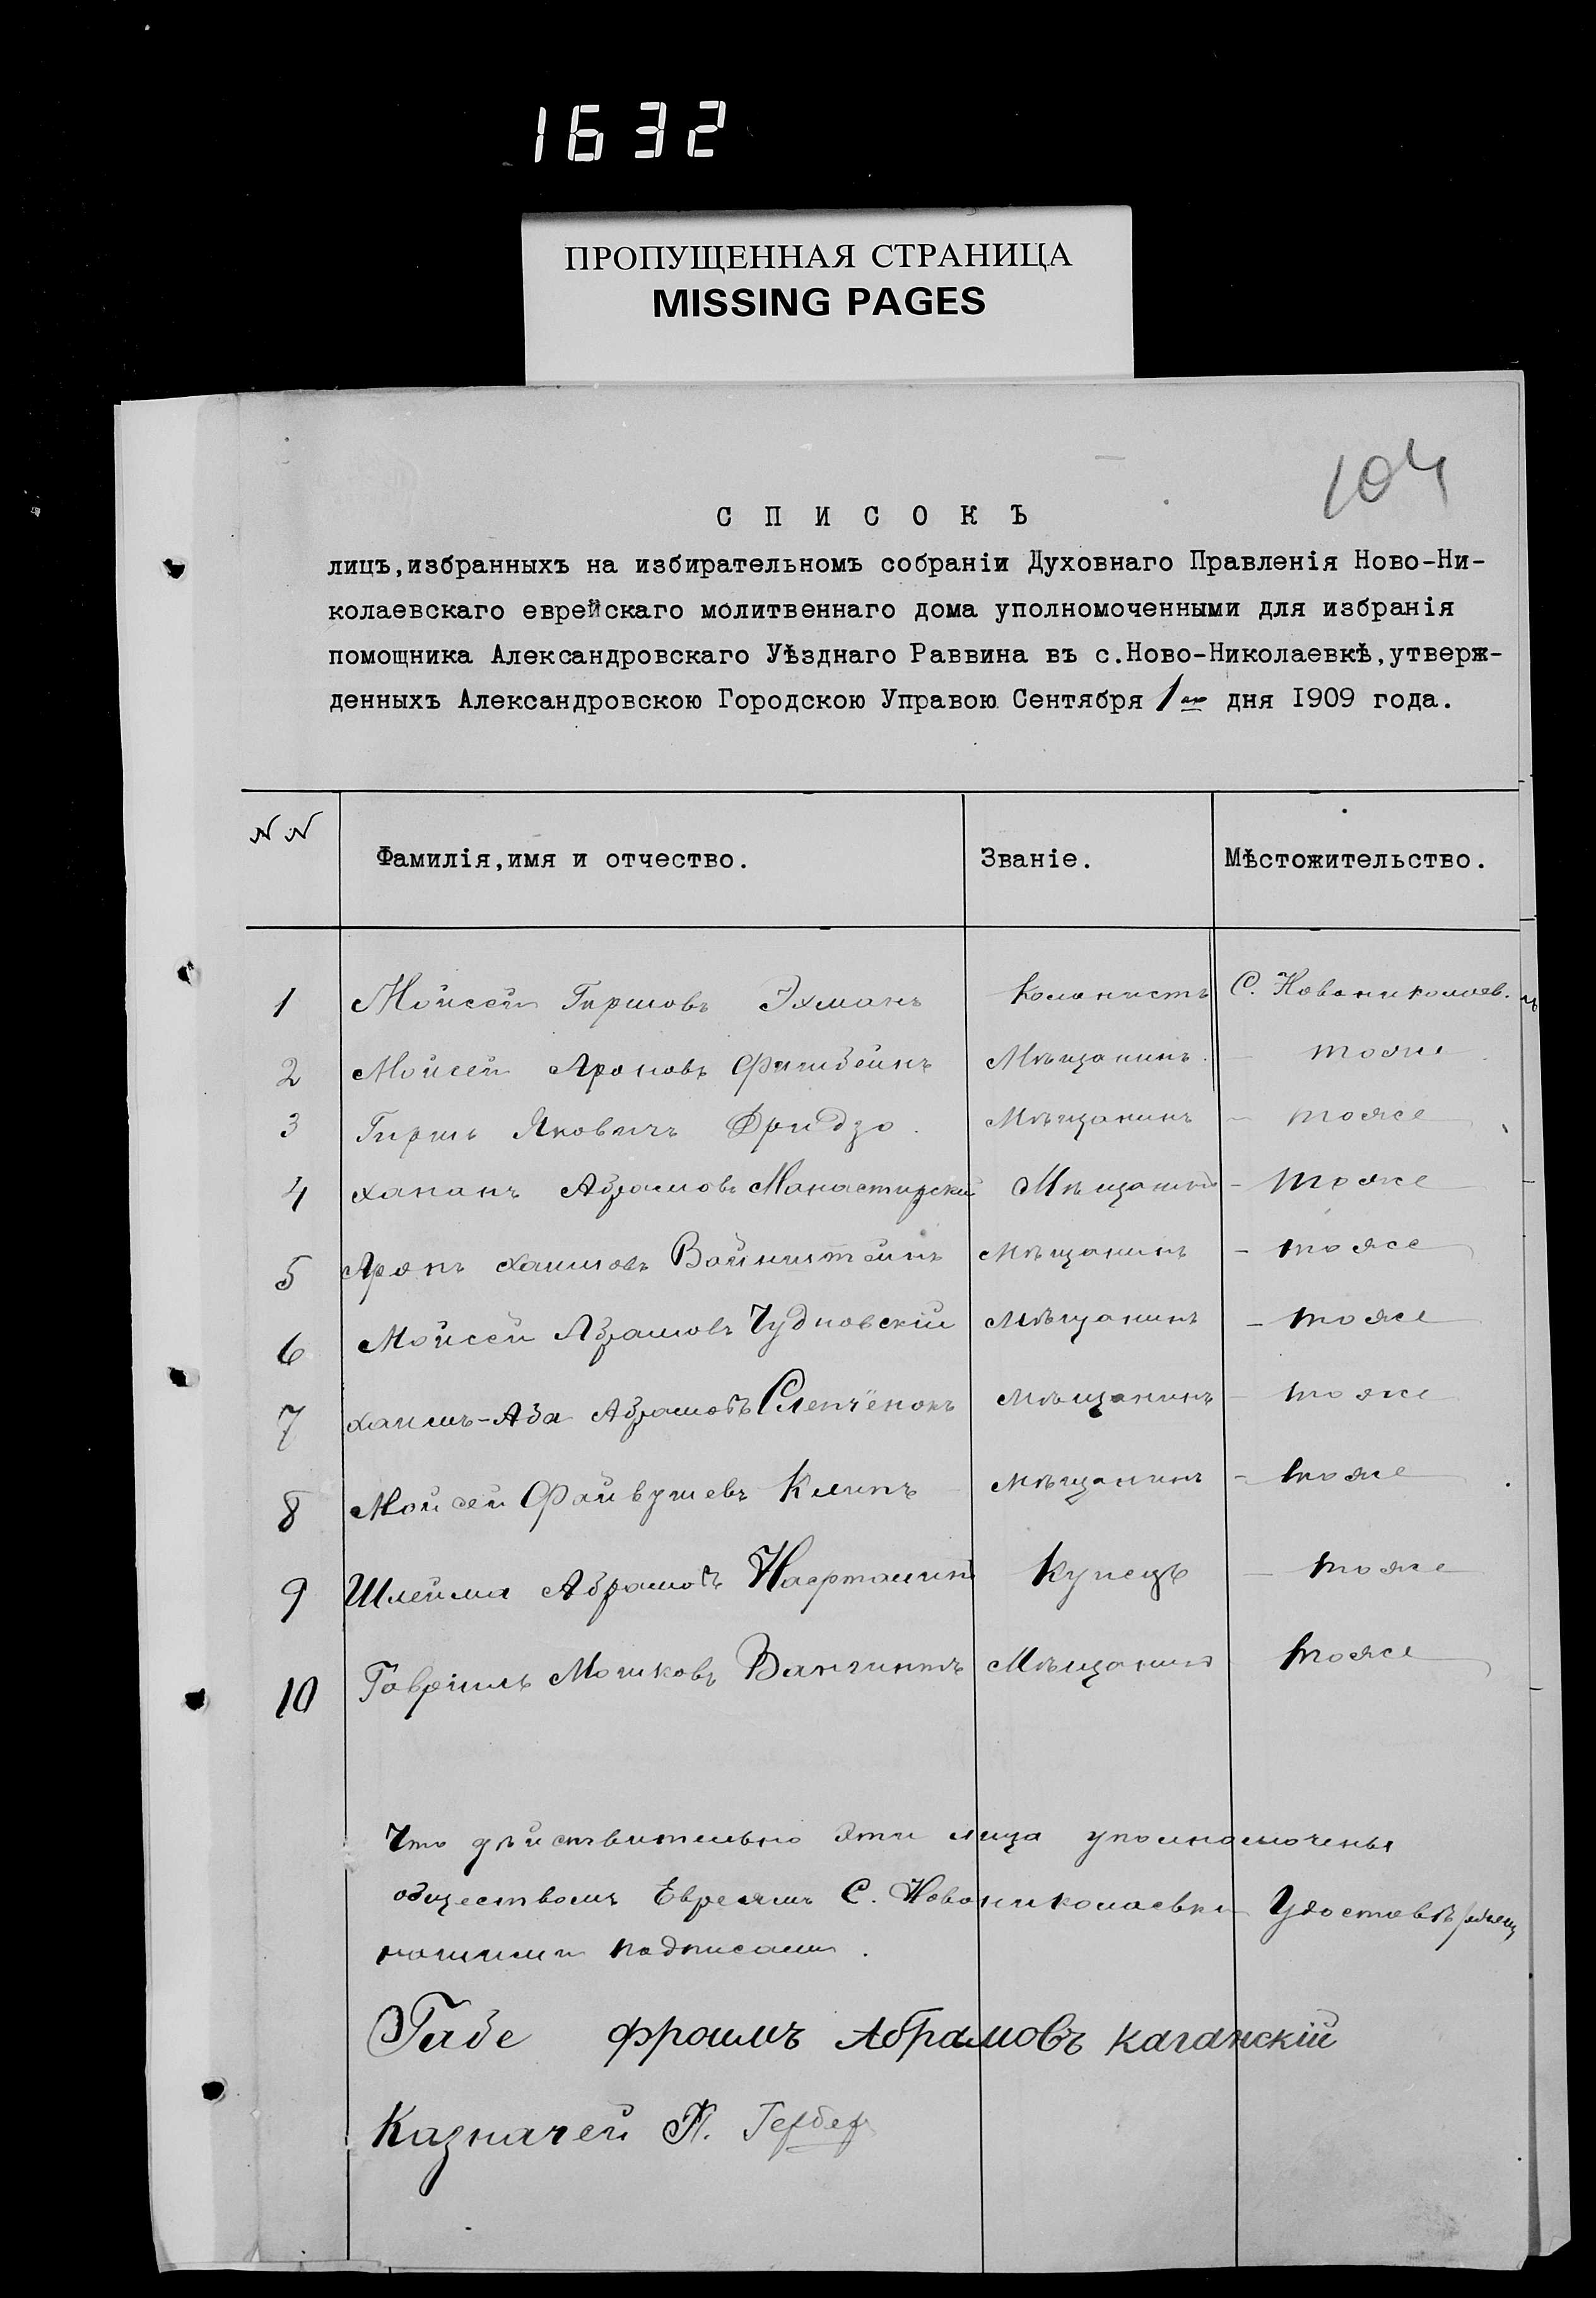 1632
ПРОПУЩЕННАЯ СТРАНИЦА
MISSING PAGES
104
С П И С О К Ъ
лицъ,избранныхъ на избирательномъ собраніи Духовнаго Правленія Ново-Ни-
колаевскаго еврейскаго молитвеннаго дома уполномоченными для избранія
помощника Александровскаго Уѣзднаго Раввина въ с.Ново-Николаевкѣ,утверж-
денныхъ Александровскою Городскою Управою Сентября 1го дня 1909 года.
NN Фамилія,имя и отчество. Званіе. Мѣстожительство.
1 Мойсей Гиршовъ Эхманъ Колонистъ С. Новониколаев.
2 Мойсей Ароновъ Фишбейнъ Мѣщанинъ - тоже
3 Гиршъ Яковичъ Фридзо. Мѣщанинъ - тоже
4 Хананъ Абрамовъ Манастирскій Мѣщанинъ - тоже
5 Аронъ Хаимовъ Вайнштейнъ Мѣщанинъ - тоже
6 Мойсей Абрамовъ Чудновскій Мѣщанинъ - тоже
7 Хаимъ-Аба Абрамовъ Слепчёнокъ Мѣщанинъ - тоже
8 Мойсей Файвушевъ Клинъ Мѣщанинъ - тоже
9 Шлейма Абрамовъ Купецъ - тоже
10 Гавріилъ Мошковъ Мѣщанинъ тоже
Что дѣйствительно эти лица уполномочены
обществомъ Евреямъ С. Новониколаевки
нашими подписами.
Габе Фроимъ Абрамовъ Каганскій
Казначей Гербер